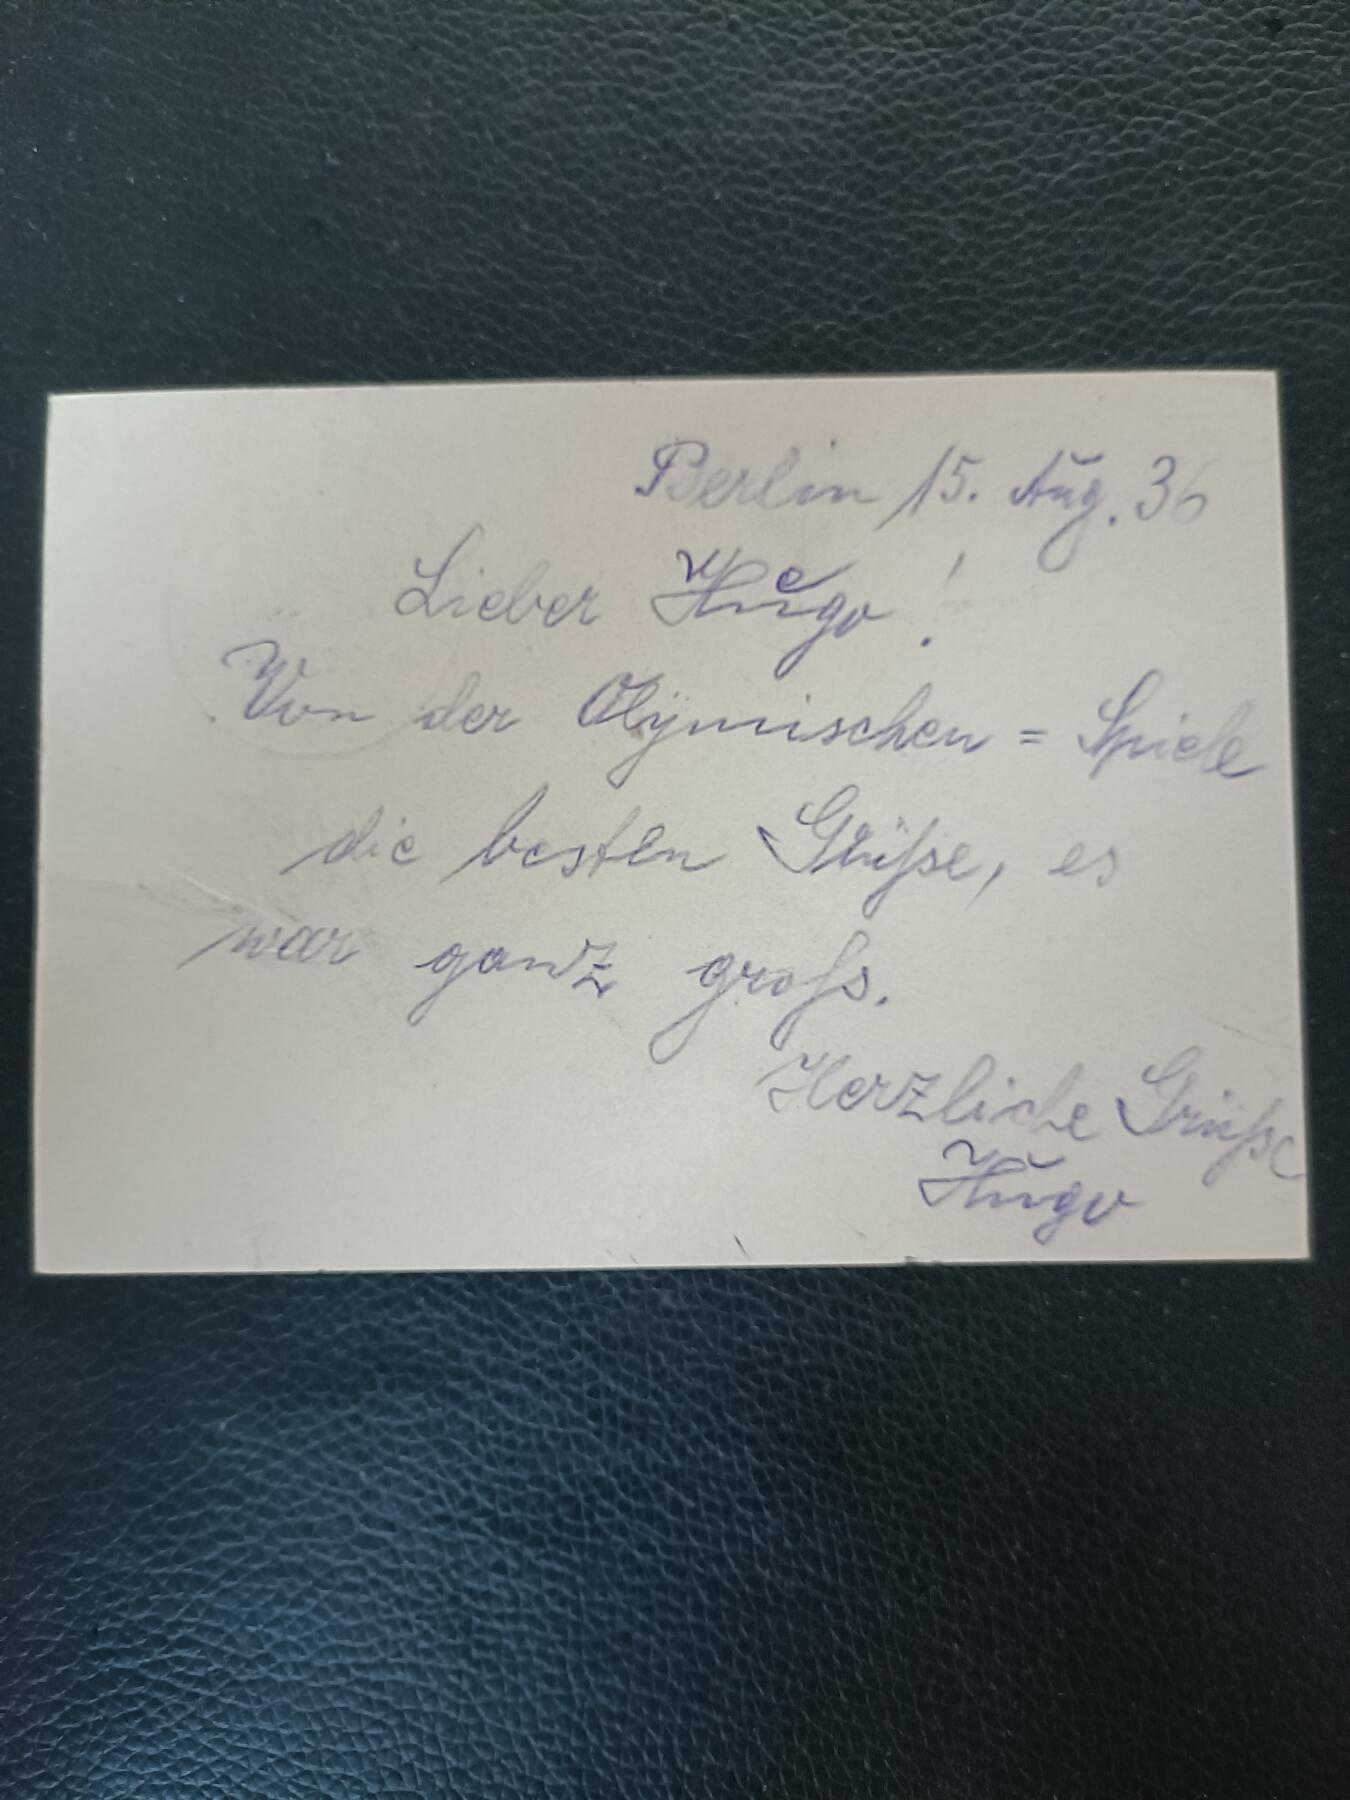 Berlin 15. Aug. 36
Lieber Hugo!
Von der Olymischen = Spiele
die besten Grüße, es
war ganz groß.
Herzliche Grüße
Hugo